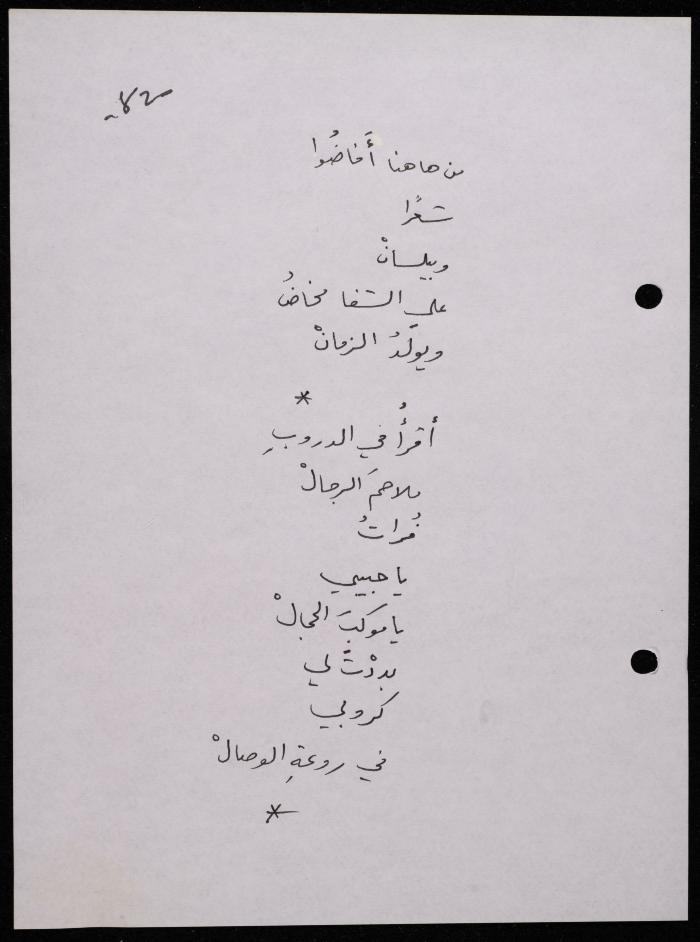 من هاهنا أَفاضُوا
شعرًا
وبيلسانْ
على الشفا مخاضُ
ويولّدُ الزمانْ
*
أقرأُ في الدروبِ
ملاحمَ الرجالْ
فُراتُ
يا حبيبي
يا موكبَ الجمالْ
بدّدْتَ لي
كروبي
في روعةِ الوصالْ
*